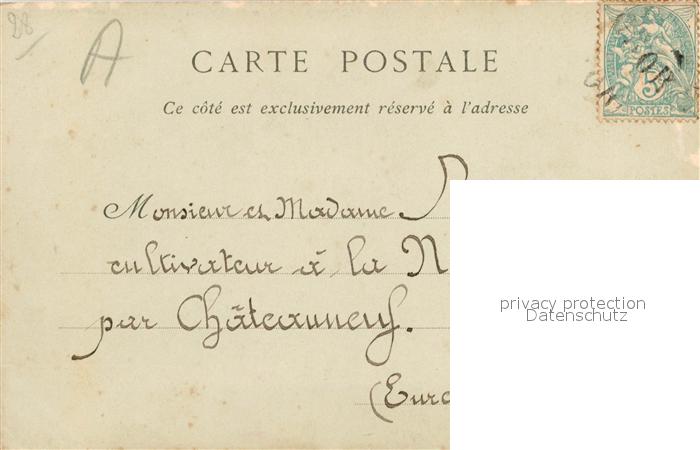 28
A
CARTE POSTALE
Ce côté est exclusivement réservé à l'adresse
5
POSTES
Monsieur et Madame
cultivateur à la N
par Châteauneuf.
(Eure
privacy protection
Datenschutz